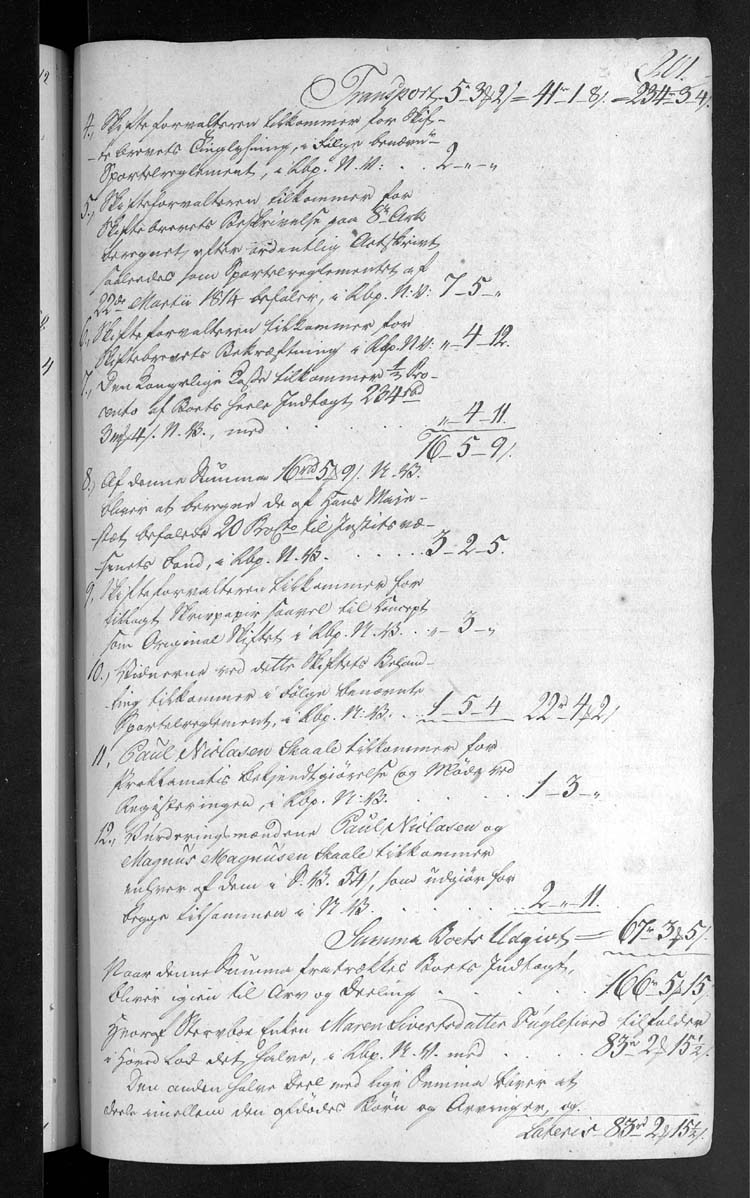 201.
Transport 5 3 2 = 41 - 1 - 8 = 234 - 3 - 4
4., Skifteforvalteren tilkommer for Skif-
-tebrevets Tinglysning, i Følge benævn-
Sportelreglement, i Rbp. N. V: . . 2 - „ - „
5., Skifteforvalteren tilkommer for
Skiftebrevets Beskrivelse paa 8te Ark
beregnet, efter ordentlig Retskrivt
saaledes som Sportelreglementet af
22de Martii 1814 befaler, i Rbp. N: V: 7 - 5 - „
6., Skifteforvalteren tilkommer for
Skiftebrevets Bekræftning i Rbp. N. V: „ - 4 - 12.
7., Den Kongelige Casse tilkommer 1/2 Pro-
cento af Boets heele Indtægt 234 rbd
3 mk 4 s. N. V., med . . . . „ - 4 - 11.
16 - 5 - 9 s.
8., Af denne Summa 16 rbd 5 9 s. N. V.
bliver at beregne de af Hans Maje-
stæt befalede 20 Procto til Justitsvæ-
senets Fond, i Rbp. N. V. . . . . . . 3 - 2 - 5.
9., Skifteforvalteren tilkommer for
tillagt Skrivpapir saavel til Concept
som Original Skiftet i Rbp. N. V. . . „ - 3 - „
10., Vidnerne ved dette Skiftets Behand-
ling tilkommer i Følge benævnte
Sportelreglement, i Rbp. N: V. . . 1 - 5 - 4 22 4 2
11., Paul Niclasen Skaale tilkommer for
Proklamatis bekjendtgiørelse og Møde ved
Registeringen, i Rbp. N: V. . . . . 1 - 3 - „
12., Vurderingsmændene Paul Niclasen og
Magnus Magnusen Skaale tilkommer
enhver af dem i S. V. 54 s, som udgiør for
begge tilsammen i N. V. . . . . 2 - „ - 11.
Summa Boets Udgivt = 67 3 5
Naar denne Summa fratrækkes Boets Indtægt,
bliver igien til Arv og Deeling . . . . 166 5 15
Hvoraf Stervboe Enken Maren Sivertsdatter Fuglefiord tilfalder
i Hoved Lod det halve, i Rbp. N. V. med . . . 83 2 15 1/2
Den anden halve Deel med lige Summa bliver at
deele imellem den afdødes Børn og Arvinger, og.
Lateris 83 2 15 1/2